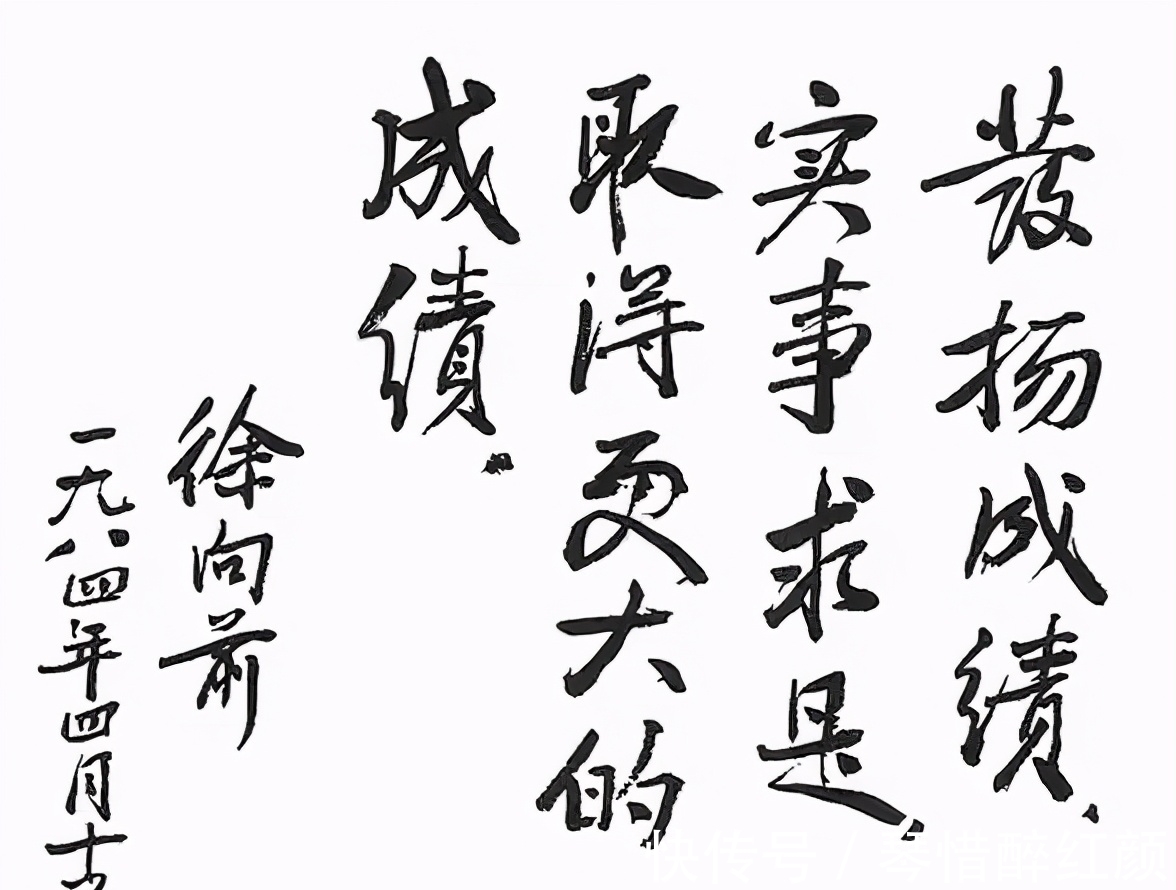 发扬成绩.
实事求是
取得更大的
成绩.
徐向前
一九八四年四月十
快传号 / 琴惜醉红颜